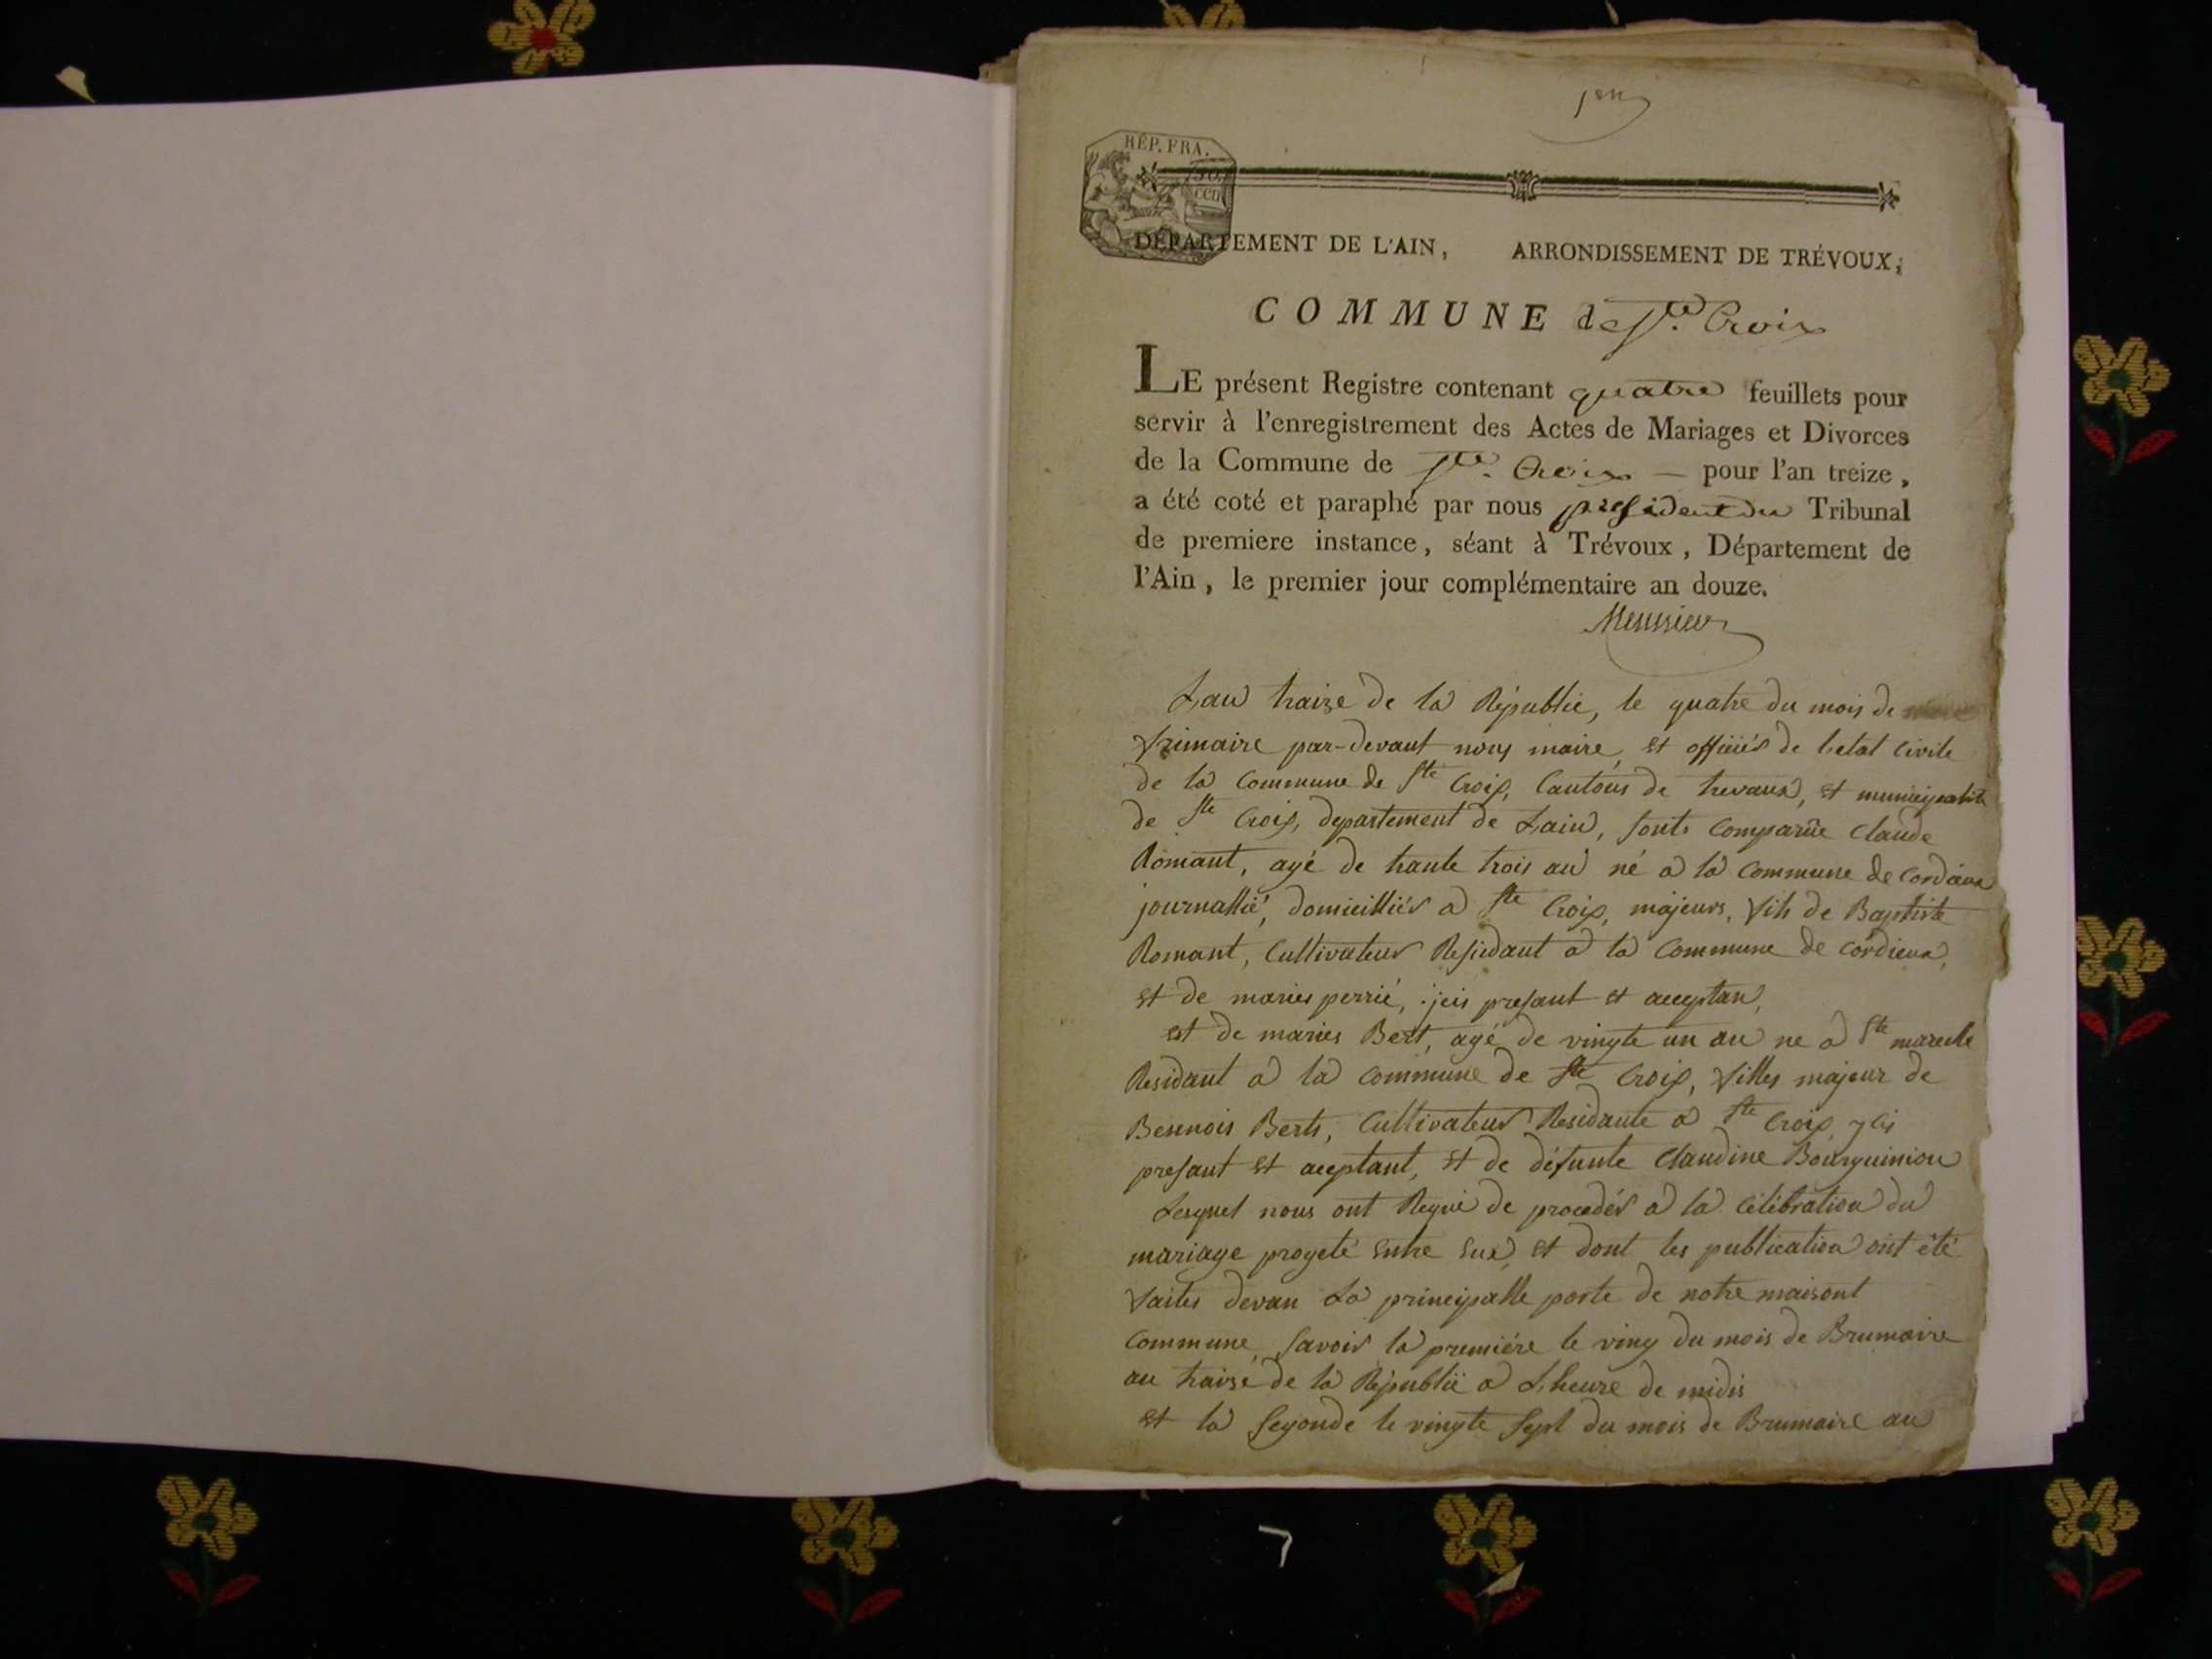 1er
RÉP. FRA.
50
cen
DÉPARTEMENT DE L'AIN, ARRONDISSEMENT DE TRÉVOUX,
COMMUNE de Ste. Croix
LE présent Registre contenant quatre feuillets pour
servir à l'enregistrement des Actes de Mariages et Divorces
de la Commune de Ste. Croix — pour l'an treize,
a été coté et paraphé par nous président du Tribunal
de premiere instance, séant à Trévoux, Département de
l'Ain, le premier jour complémentaire an douze.
Lan traize de la Républic, le quatre du mois de
frimaire par-devant nous maire, et officiés de l'etat civile
de la Commune de Ste Croix, Cantons de trevaux, et municipalité
de Ste Croix, departement de Lain, sonts Comparûe Claude
Romant, agé de trante trois an né a la Commune de Cordieux
journallié, domicilliér a Ste Croix, majeurs, fils de Baptiste
Romant, Cultivateur Resiedant a la Commune de Cordieux,
et de maries perrié, ijcis presant et acceptan,
et de maries Bert, agé de vingte un an ne a Ste
Residant a la Commune de Ste Croix, filles majeur de
Bennois Berts, Cultivateur Residante a Ste Croix, ycis
presant et aceptant, et de défunte Claudine Bourguiniou
Lesquel nous ont Requi de procedér a la Célébration du
mariage progeté entre eux, et dont les publication ont été
faites devan La principalle porte de notre maisont
Commune, savoir la premiére le ving du mois de Brumaire
an traize de la Républic a Lheure de midis
et la segonde le vingte sept du mois de Brumaire an